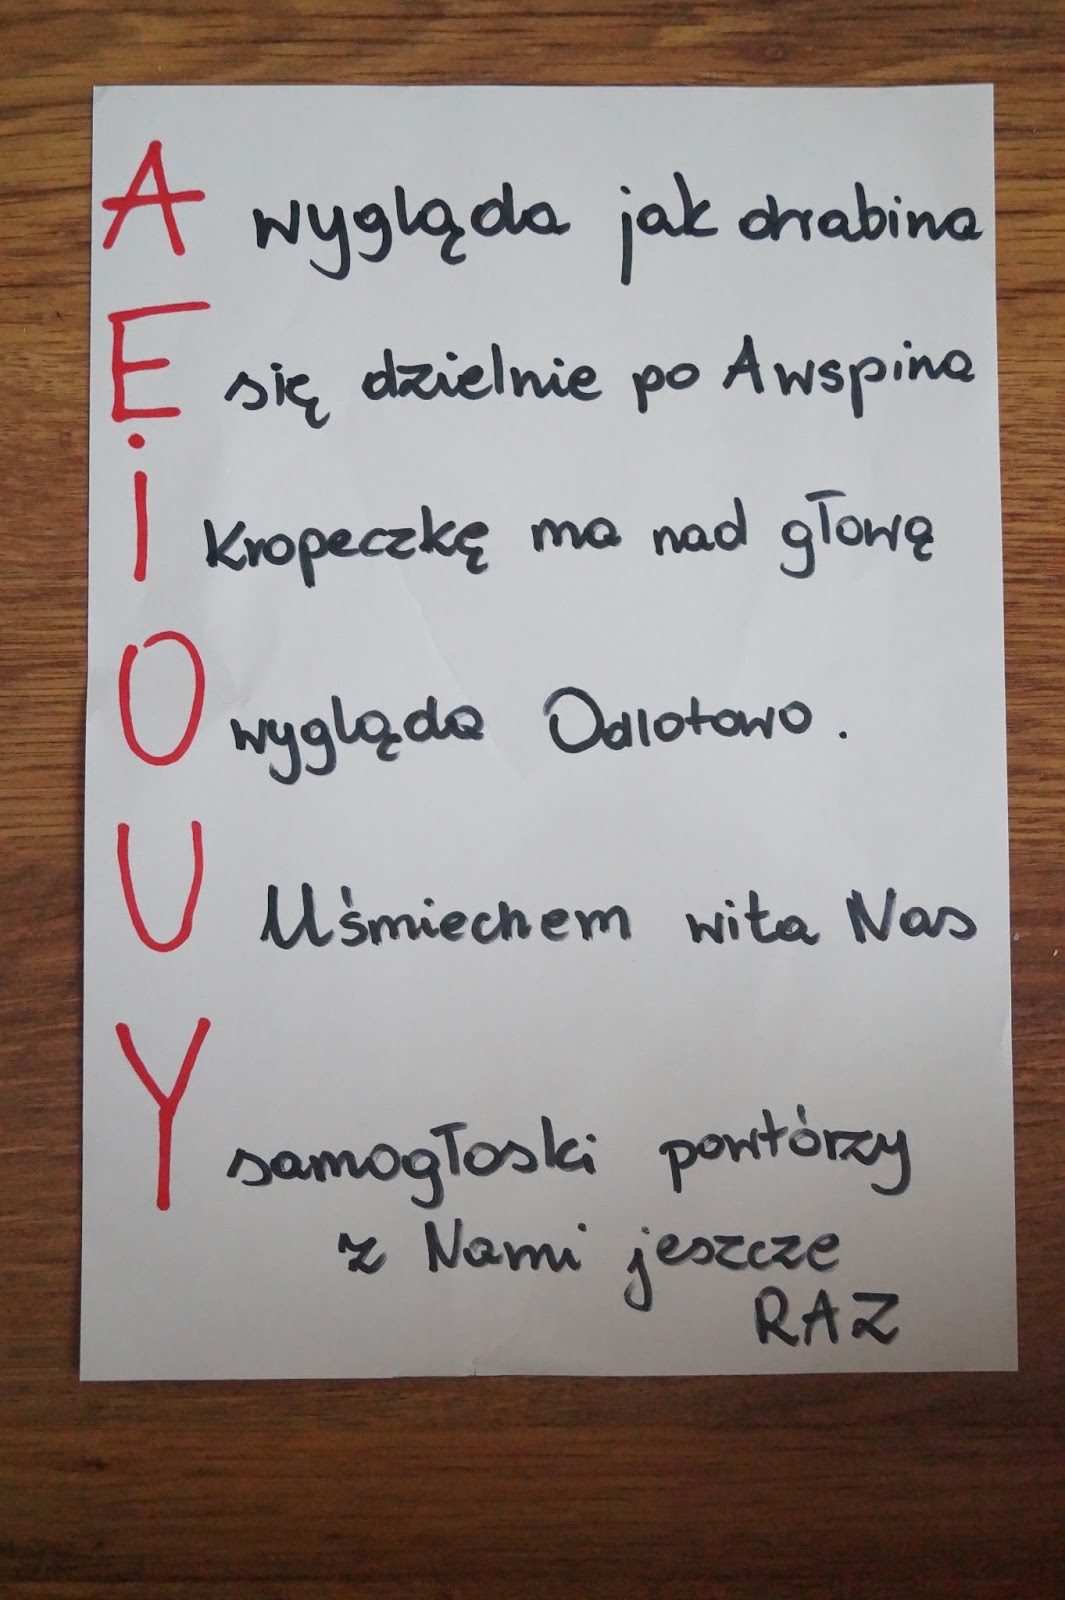 A wygląda jak drabina
E się dzielnie po A wspina
i kropeczkę ma nad głową
O wygląda Odlotowo.
U Uśmiechem wita Nas
Y samogłoski powtórzy
z Nami jeszcze
RAZ